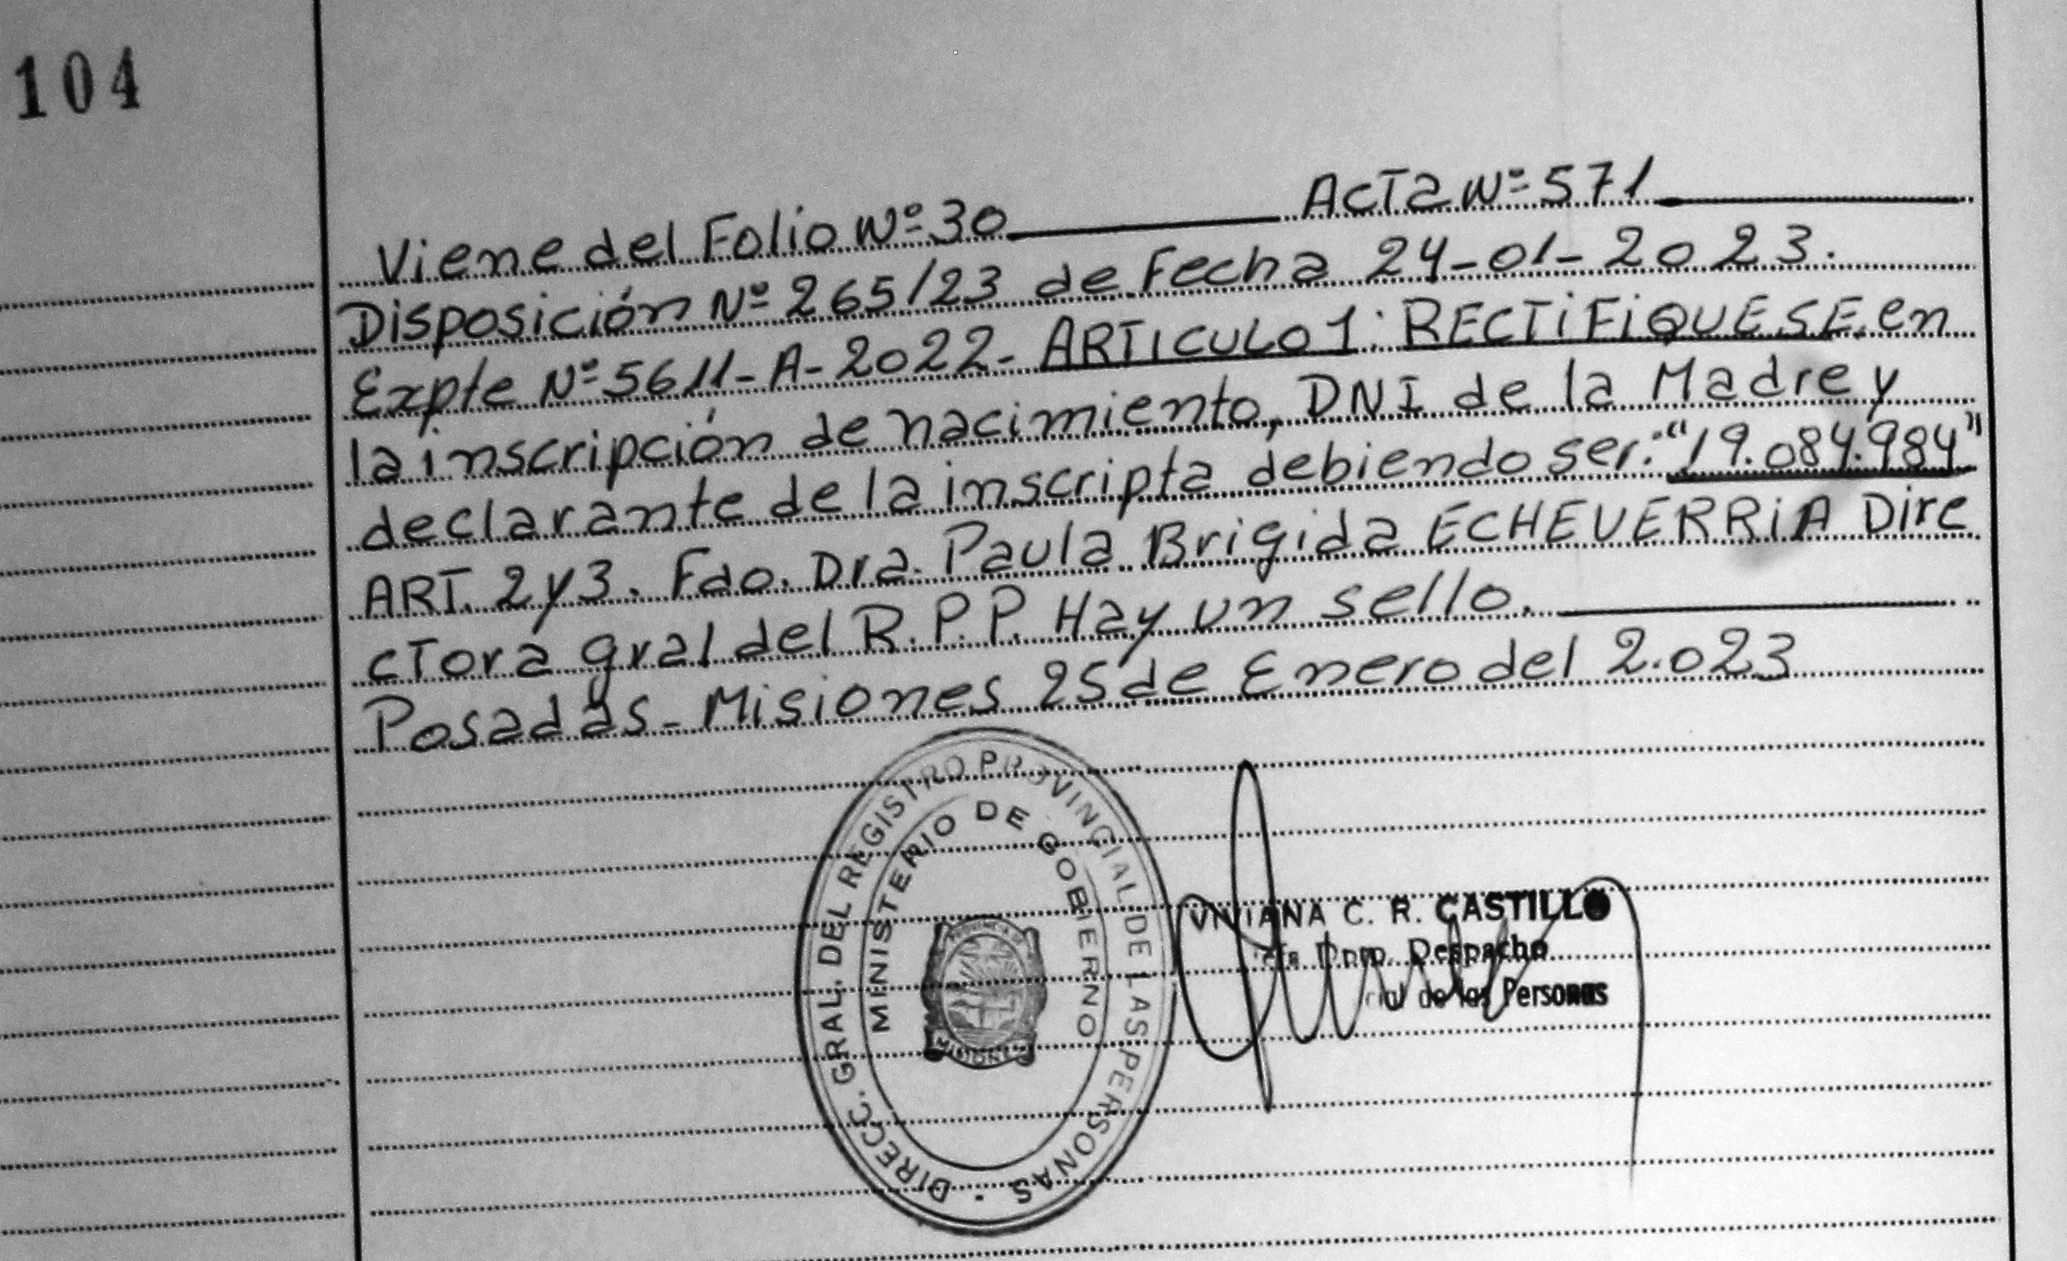 104
Viene del Folio Nº 30 ACTA Nº 571
Disposición Nº 265/23 de Fecha 24-01-2023.
Expte Nº 5611-A-2022- ARTICULO 1: RECTIFIQUESE en
la inscripción de nacimiento, DNI de la Madre y
declarante de la inscripta debiendo ser: "19.084.984"
ART. 2 y 3. Fdo. Dra. Paula Brigida ECHEVERRIA Dire
ctora gral del R.P.P. Hay un sello.
Posadas - Misiones 25 de Enero del 2.023
DIRECC. GRAL. DEL REGISTRO PROVINCIAL DE LAS PERSONAS
MINISTERIO DE GOBIERNO
PROVINCIA DE
MISIONES
VIVIANA C. R. CASTILLO
Despacho
de las Personas